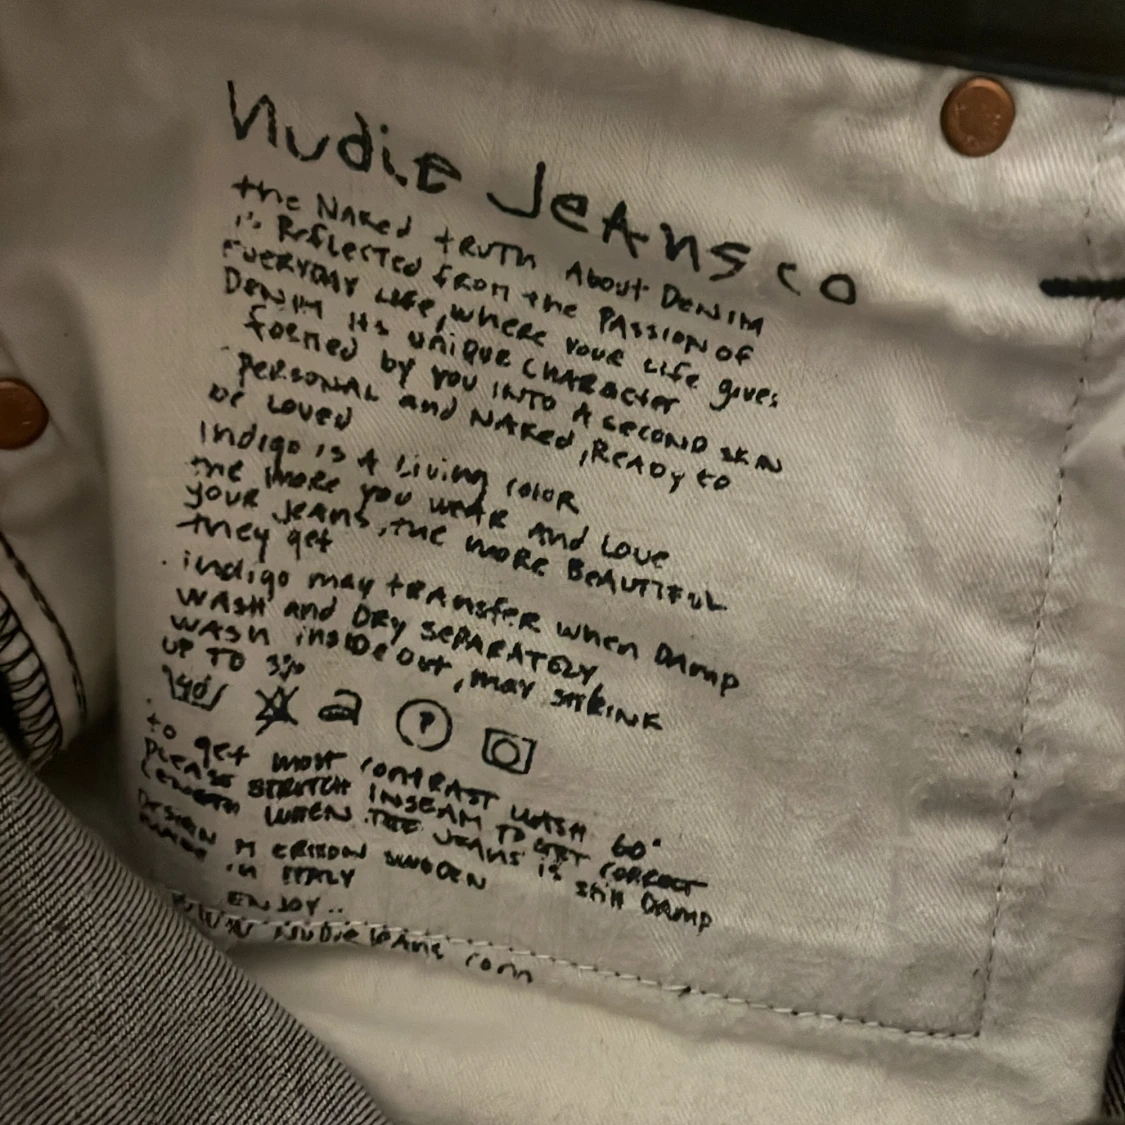 Nudie Jeans co
the NAKed tRUTh About DENIM
is ReflecTed from the PASSion of
EVERYDAY Life, where YOUR Life gives
DENIM its UNiQUE CHARActer
foRmed by YOU INTO A SECOND SKIN
PERSONAL and NAKed, READY to
be Loved
Indigo is A Living coloR
the more you weAR And Love
YOUR JeAns, the moRe BeAUTIFUL
they get
indigo may tRAnsfeR when DAmp
WASH and DRY SEPARATELY
WASH insiDe out, may SHRINK
UP TO 3%
40°
P
to get most contRAST WASH 60°
PLEASE STRETCH INSEAM TO GET CORRECT
LENGTH WHEN THE JEANS is still DAMP
DESIGN M ERIXON SWEDEN
MADE in ITALY
ENJOY..
www nudie jeans com